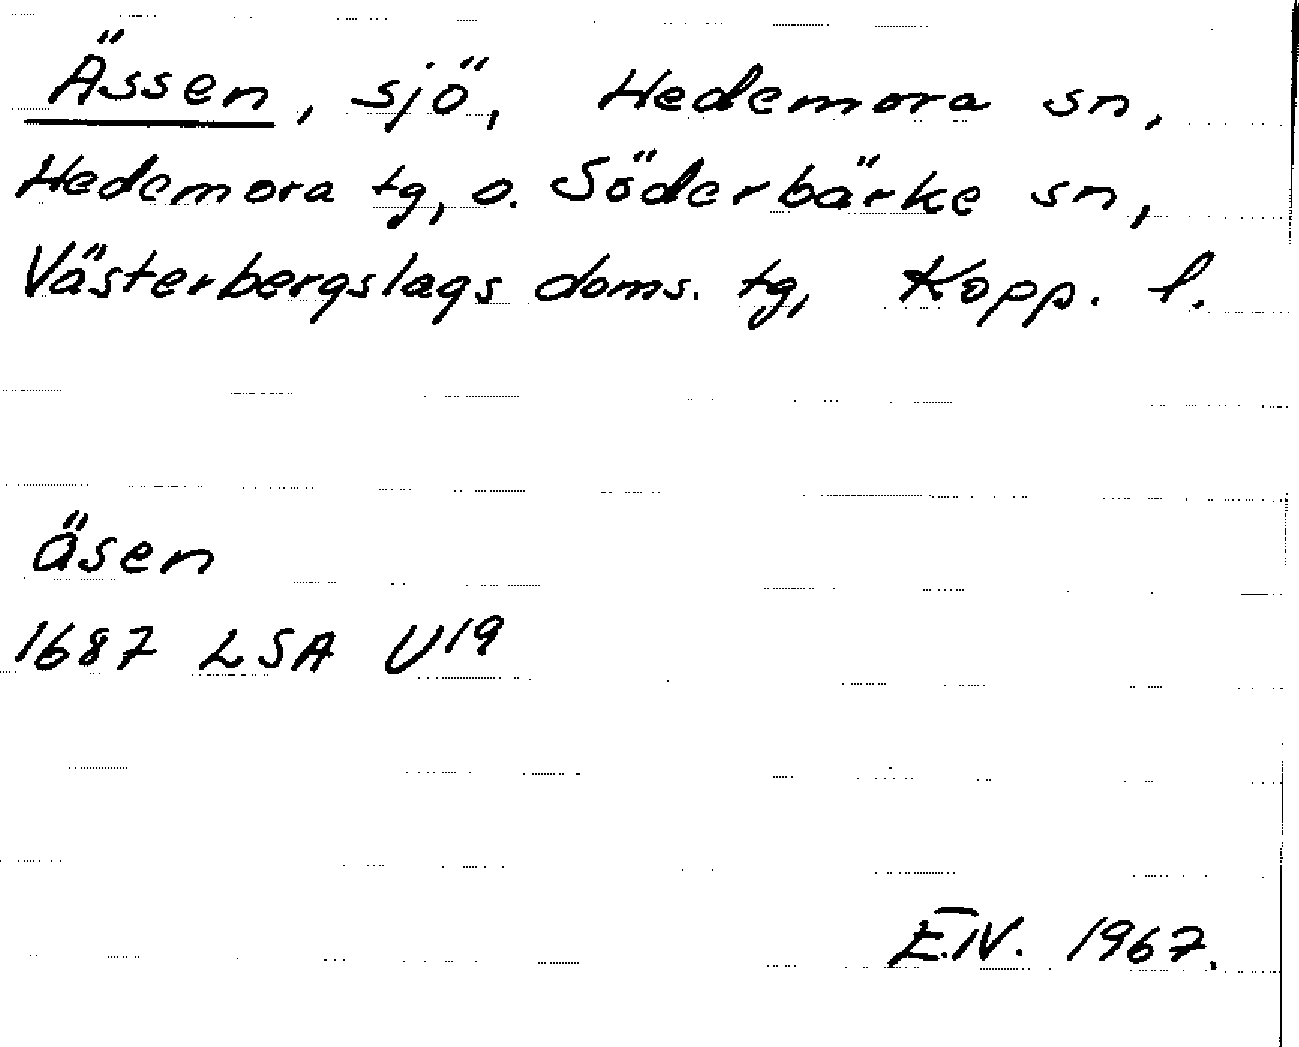 Ässen, sjö, Hedemora sn,
Hedemora tg, o. Söderbärke sn,
Västerbergslags doms. tg, Kopp. l.
äsen
1687 LSA U19
E.IV. 1967.